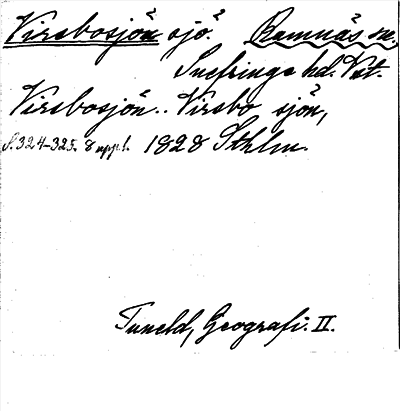 Virsbosjön sjö. Ramnäs sn.
Snefringe hd. Vst.
Virsbosjön.. Virsbo sjön,
S. 324-325. 8 uppl. 1828 Sthlm.
Tuneld, Geografi. II.